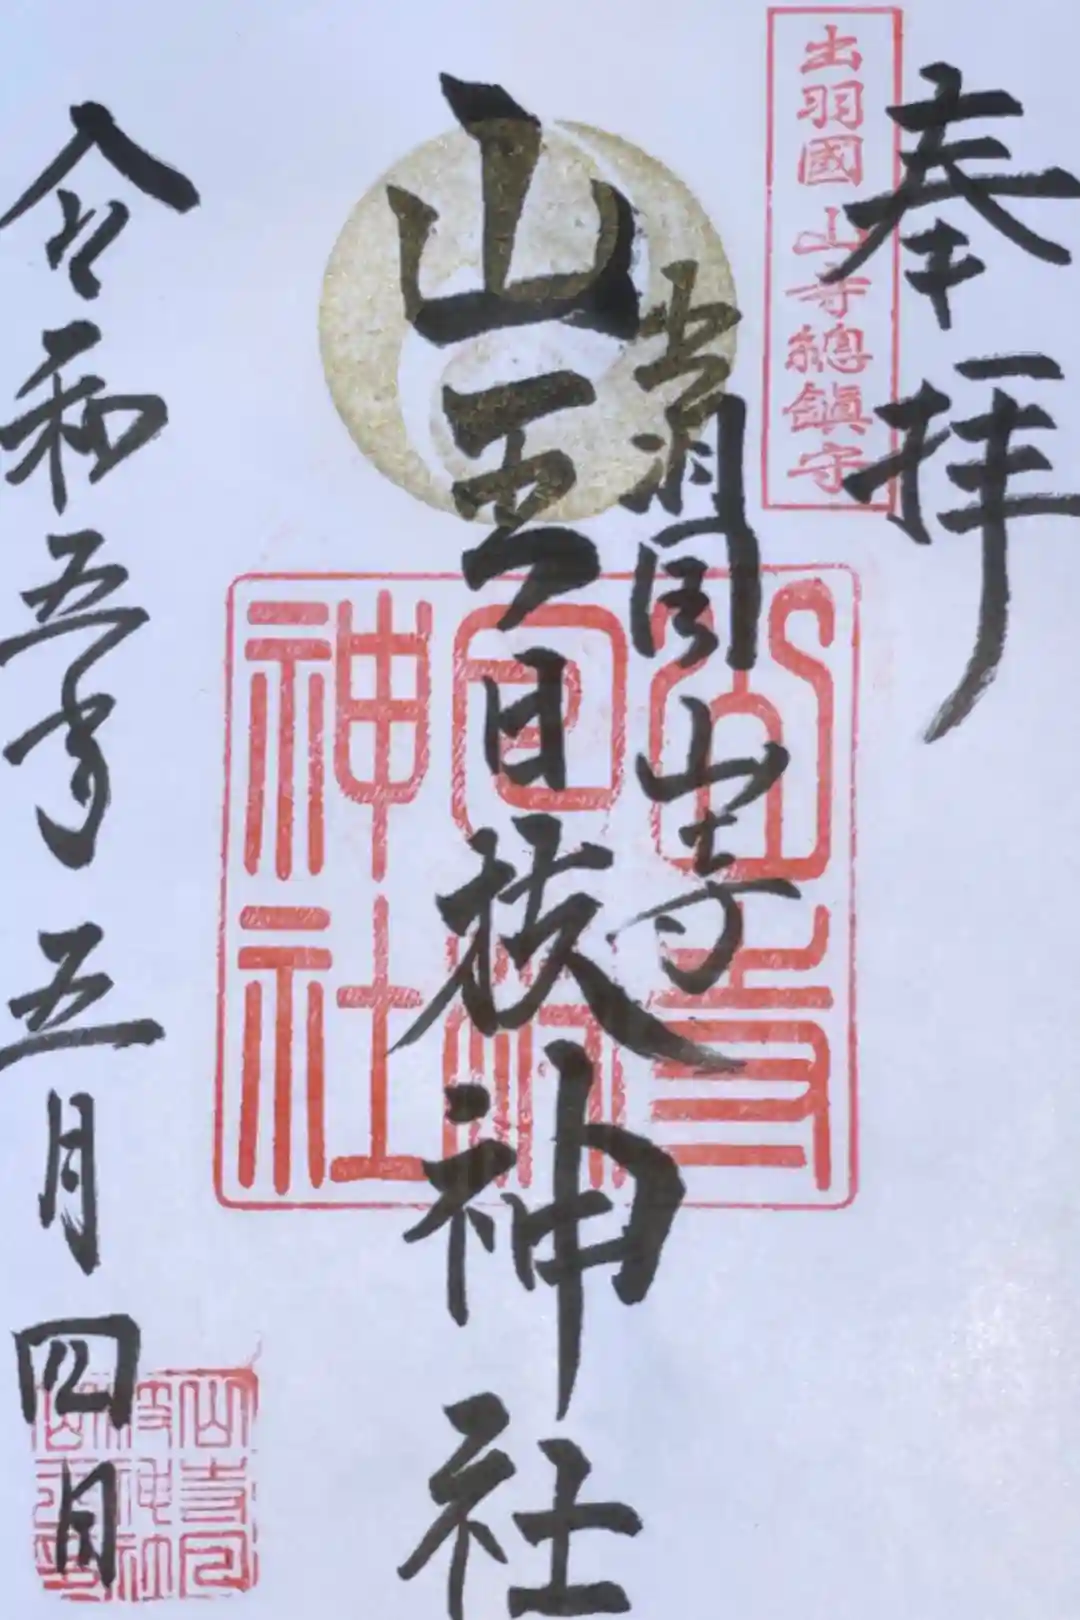 奉拝
出羽國 山寺總鎮守
出羽国山寺
山王日枝神社
山寺日枝神社
令和五年五月四日
山寺日枝神社